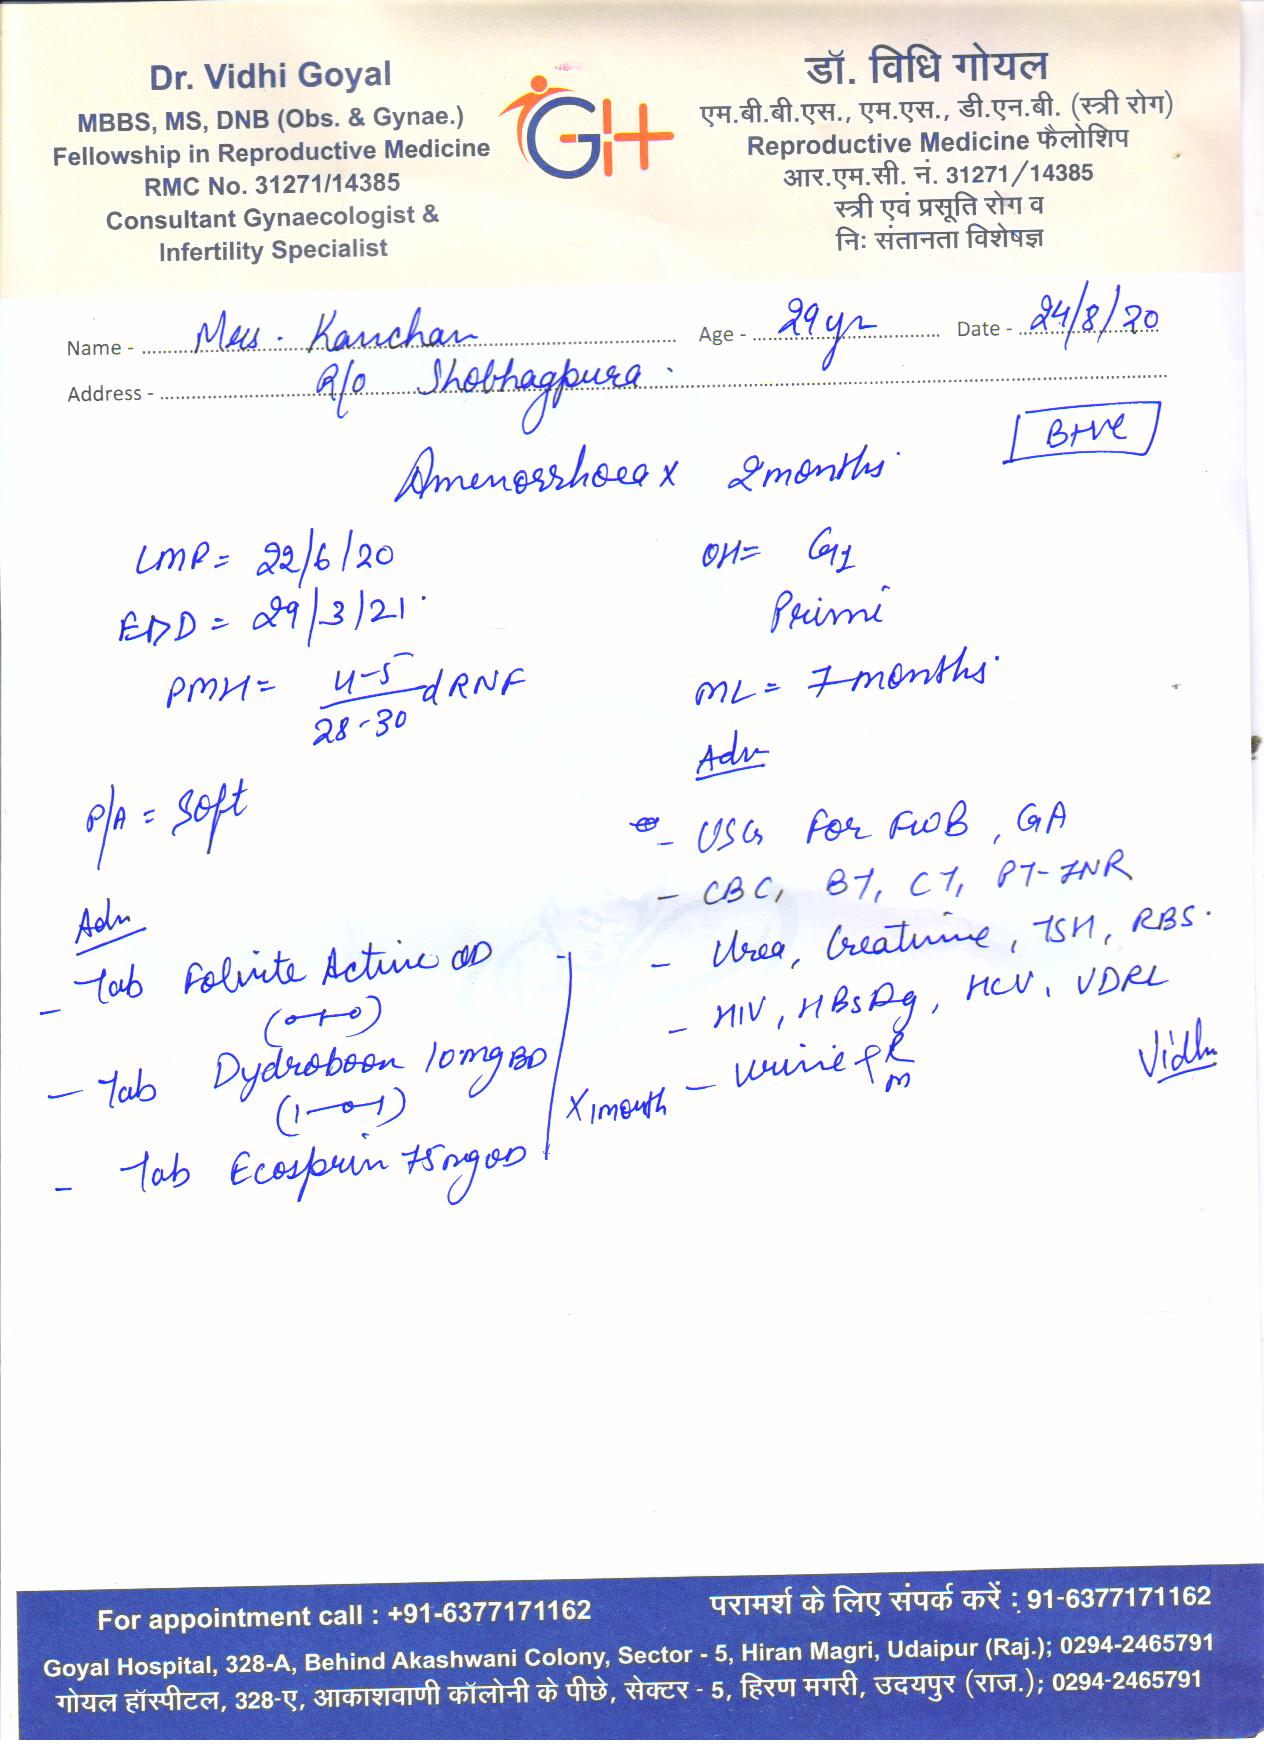 Dr. Vidhi Goyal
MBBS, MS, DNB (Obs. & Gynae.)
Fellowship in Reproductive Medicine
RMC No. 31271/14385
Consultant Gynaecologist &
Infertility Specialist
GH
डॉ. विधि गोयल
एम.बी.बी.एस., एम.एस., डी.एन.बी. (स्त्री रोग)
Reproductive Medicine फैलोशिप
आर.एम.सी. नं. 31271/14385
स्त्री एवं प्रसूति रोग व
निः संतानता विशेषज्ञ
Name - Mrs. Kanchan Age - 29yr Date - 24/8/20
Address - R/o Shobhagpura.
B+ve
Amenorrhoea x 2 months.
LMP = 22/6/20
EDD = 29/3/21.
PMH = 4-5/28-30 d RNF
P/A = Soft
OH = G1
Primi
ML = 7 months.
Adv
- USG For FWB, GA
- CBC, BT, CT, PT-INR
- Urea, Creatinine, TSH, RBS.
- HIV, HBsAg, HCV, VDRL
- Urine R/m
Vidhi
Adv
- Tab Folvite Active OD
(0-1-0)
- Tab Dydroboon 10mg BD
(1-0-1)
- Tab Ecosprin 75mg OD
x 1 month
For appointment call : +91-6377171162
परामर्श के लिए संपर्क करें : 91-6377171162
Goyal Hospital, 328-A, Behind Akashwani Colony, Sector - 5, Hiran Magri, Udaipur (Raj.); 0294-2465791
गोयल हॉस्पीटल, 328-ए, आकाशवाणी कॉलोनी के पीछे, सेक्टर - 5, हिरण मगरी, उदयपुर (राज.); 0294-2465791